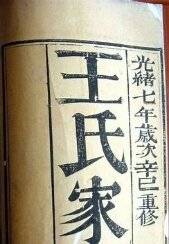 光緒七年歲次辛巳重修
王氏家